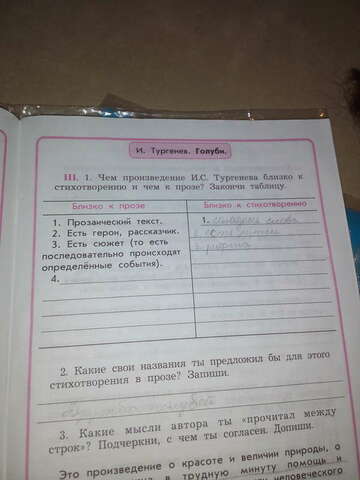 И. Тургенев. Голуби.
III. 1. Чем произведение И.С. Тургенева близко к
стихотворению и чем к прозе? Закончи таблицу.
Близко к прозе
Близко к стихотворению
1. Прозаический текст.
2. Есть герои, рассказчик.
3. Есть сюжет (то есть
последовательно происходят
определённые события).
4.
1.
2. Какие свои названия ты предложил бы для этого
стихотворения в прозе? Запиши.
3. Какие мысли автора ты «прочитал между
строк»? Подчеркни, с чем ты согласен. Допиши.
Это произведение о красоте и величии природы, о
в трудную минуту помощь и
человеческого